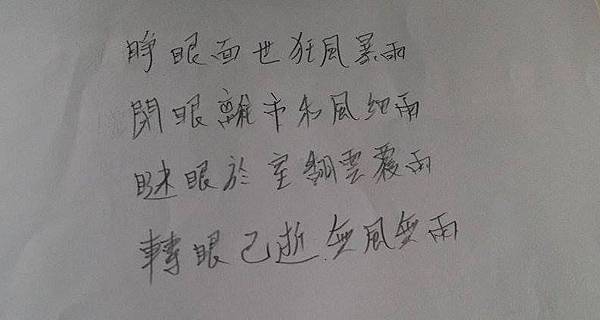 睜眼面世狂風暴雨
閉眼離市和風細雨
瞇眼於室翻雲覆雨
轉眼已逝無風無雨